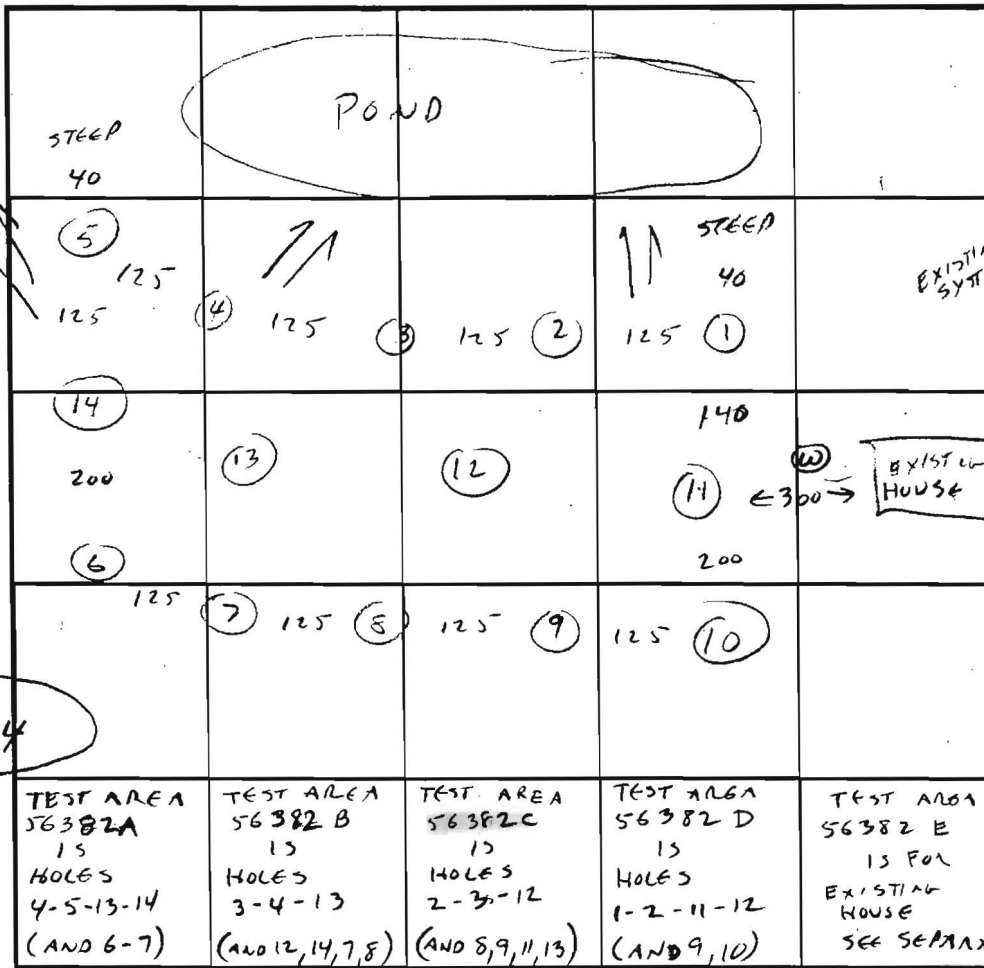 POND
STEEP
40
5
125
125
4
125
3
125
2
STEEP
40
125
1
14
200
6
13
12
140
11
←300→
W
200
HOUSE
125
7
125
8
125
9
125
10
4
TEST AREA
56382A
IS
HOLES
4-5-13-14
(AND 6-7)
TEST AREA
56382 B
IS
HOLES
3-4-13
(AND 12,14,7,8)
TEST AREA
56382C
IS
HOLES
2-3-12
(AND 8,9,11,13)
TEST AREA
56382 D
IS
HOLES
1-2-11-12
(AND 9,10)
TEST AREA
56382 E
IS FOR
EXISTING
HOUSE
SEE